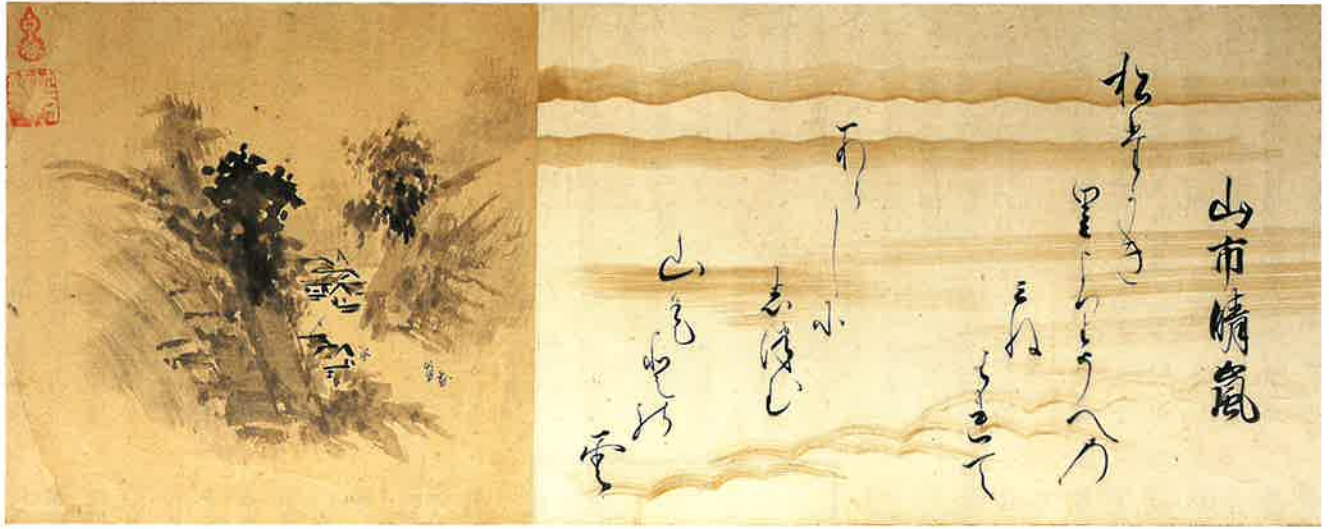 山市晴嵐
松たかき
里よりうへの
みね
はれて
あらしに
しつむ
山もとの
雲